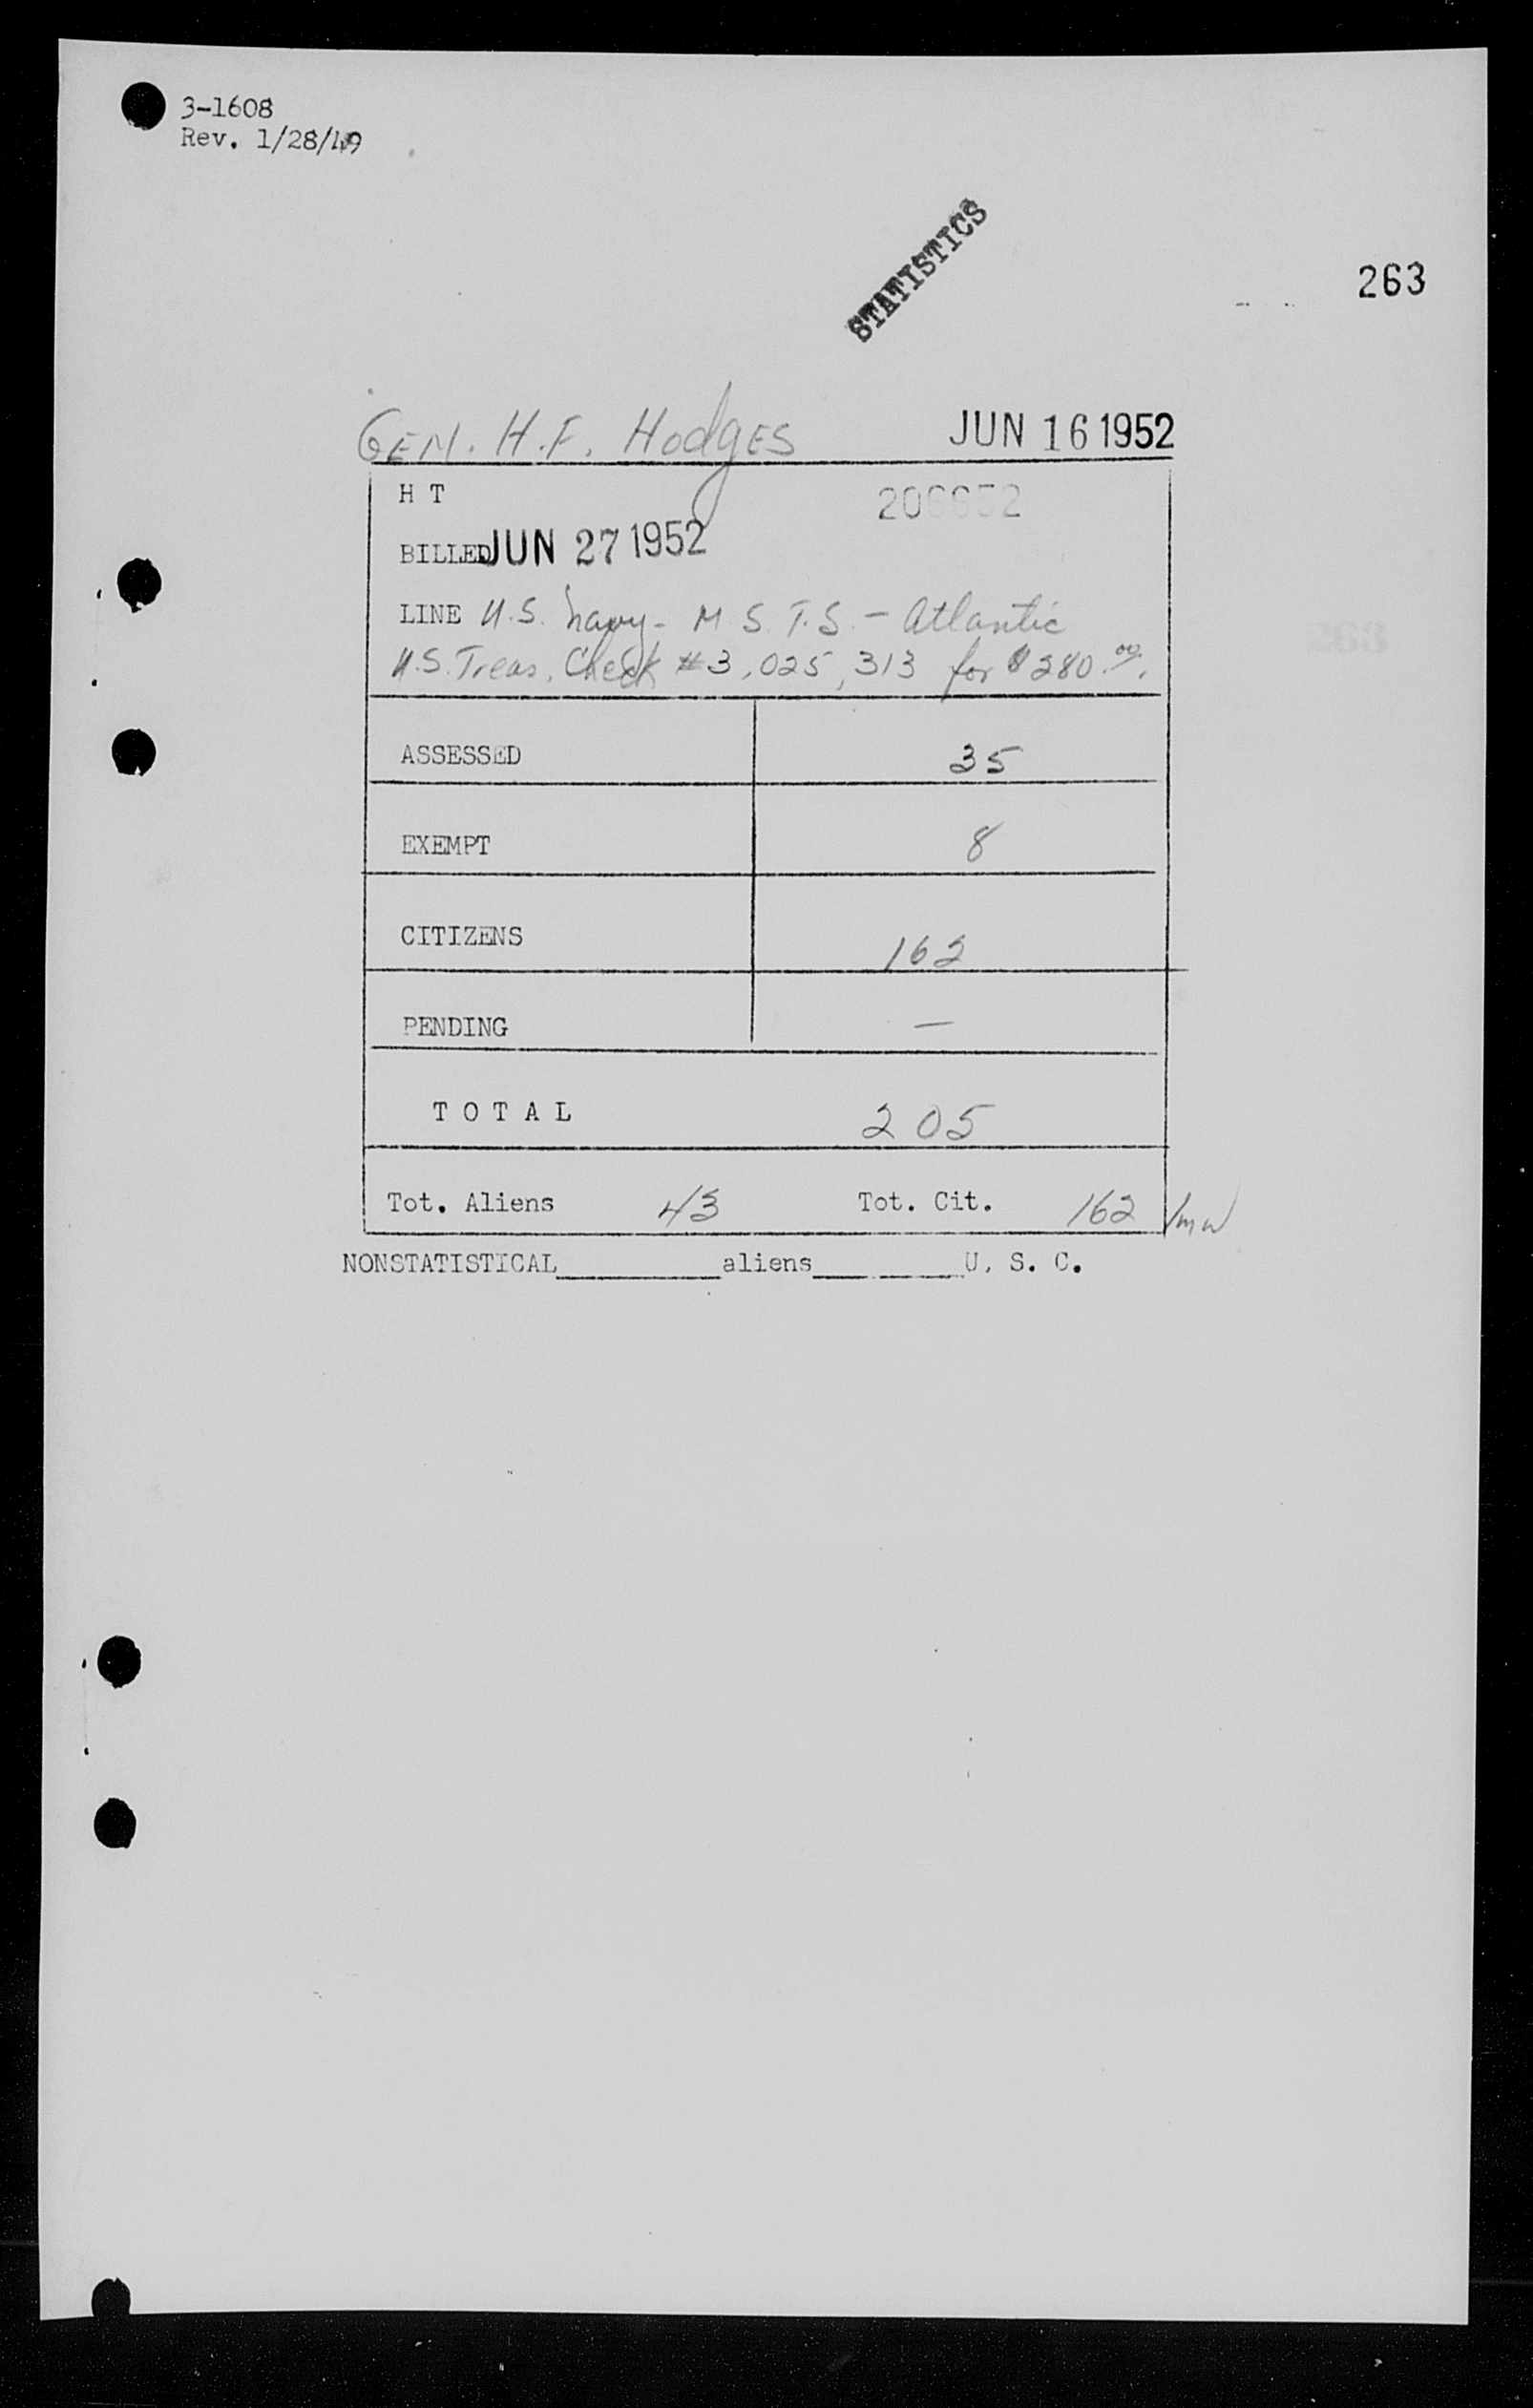 3-1608
Rev. 1/28/49
STATISTICS
263
GEN. H.F. HodgES JUN 16 1952
H T
BILLED JUN 27 1952
LINE U.S. Navy - M.S.T.S. - Atlantic
U.S. Treas. Check #3,025,313 for $280.00.
ASSESSED 35
EXEMPT 8
CITIZENS 162
PENDING —
T O T A L 205
Tot. Aliens 43 Tot. Cit. 162 /mw
NONSTATISTICAL__________aliens__________U. S. C.